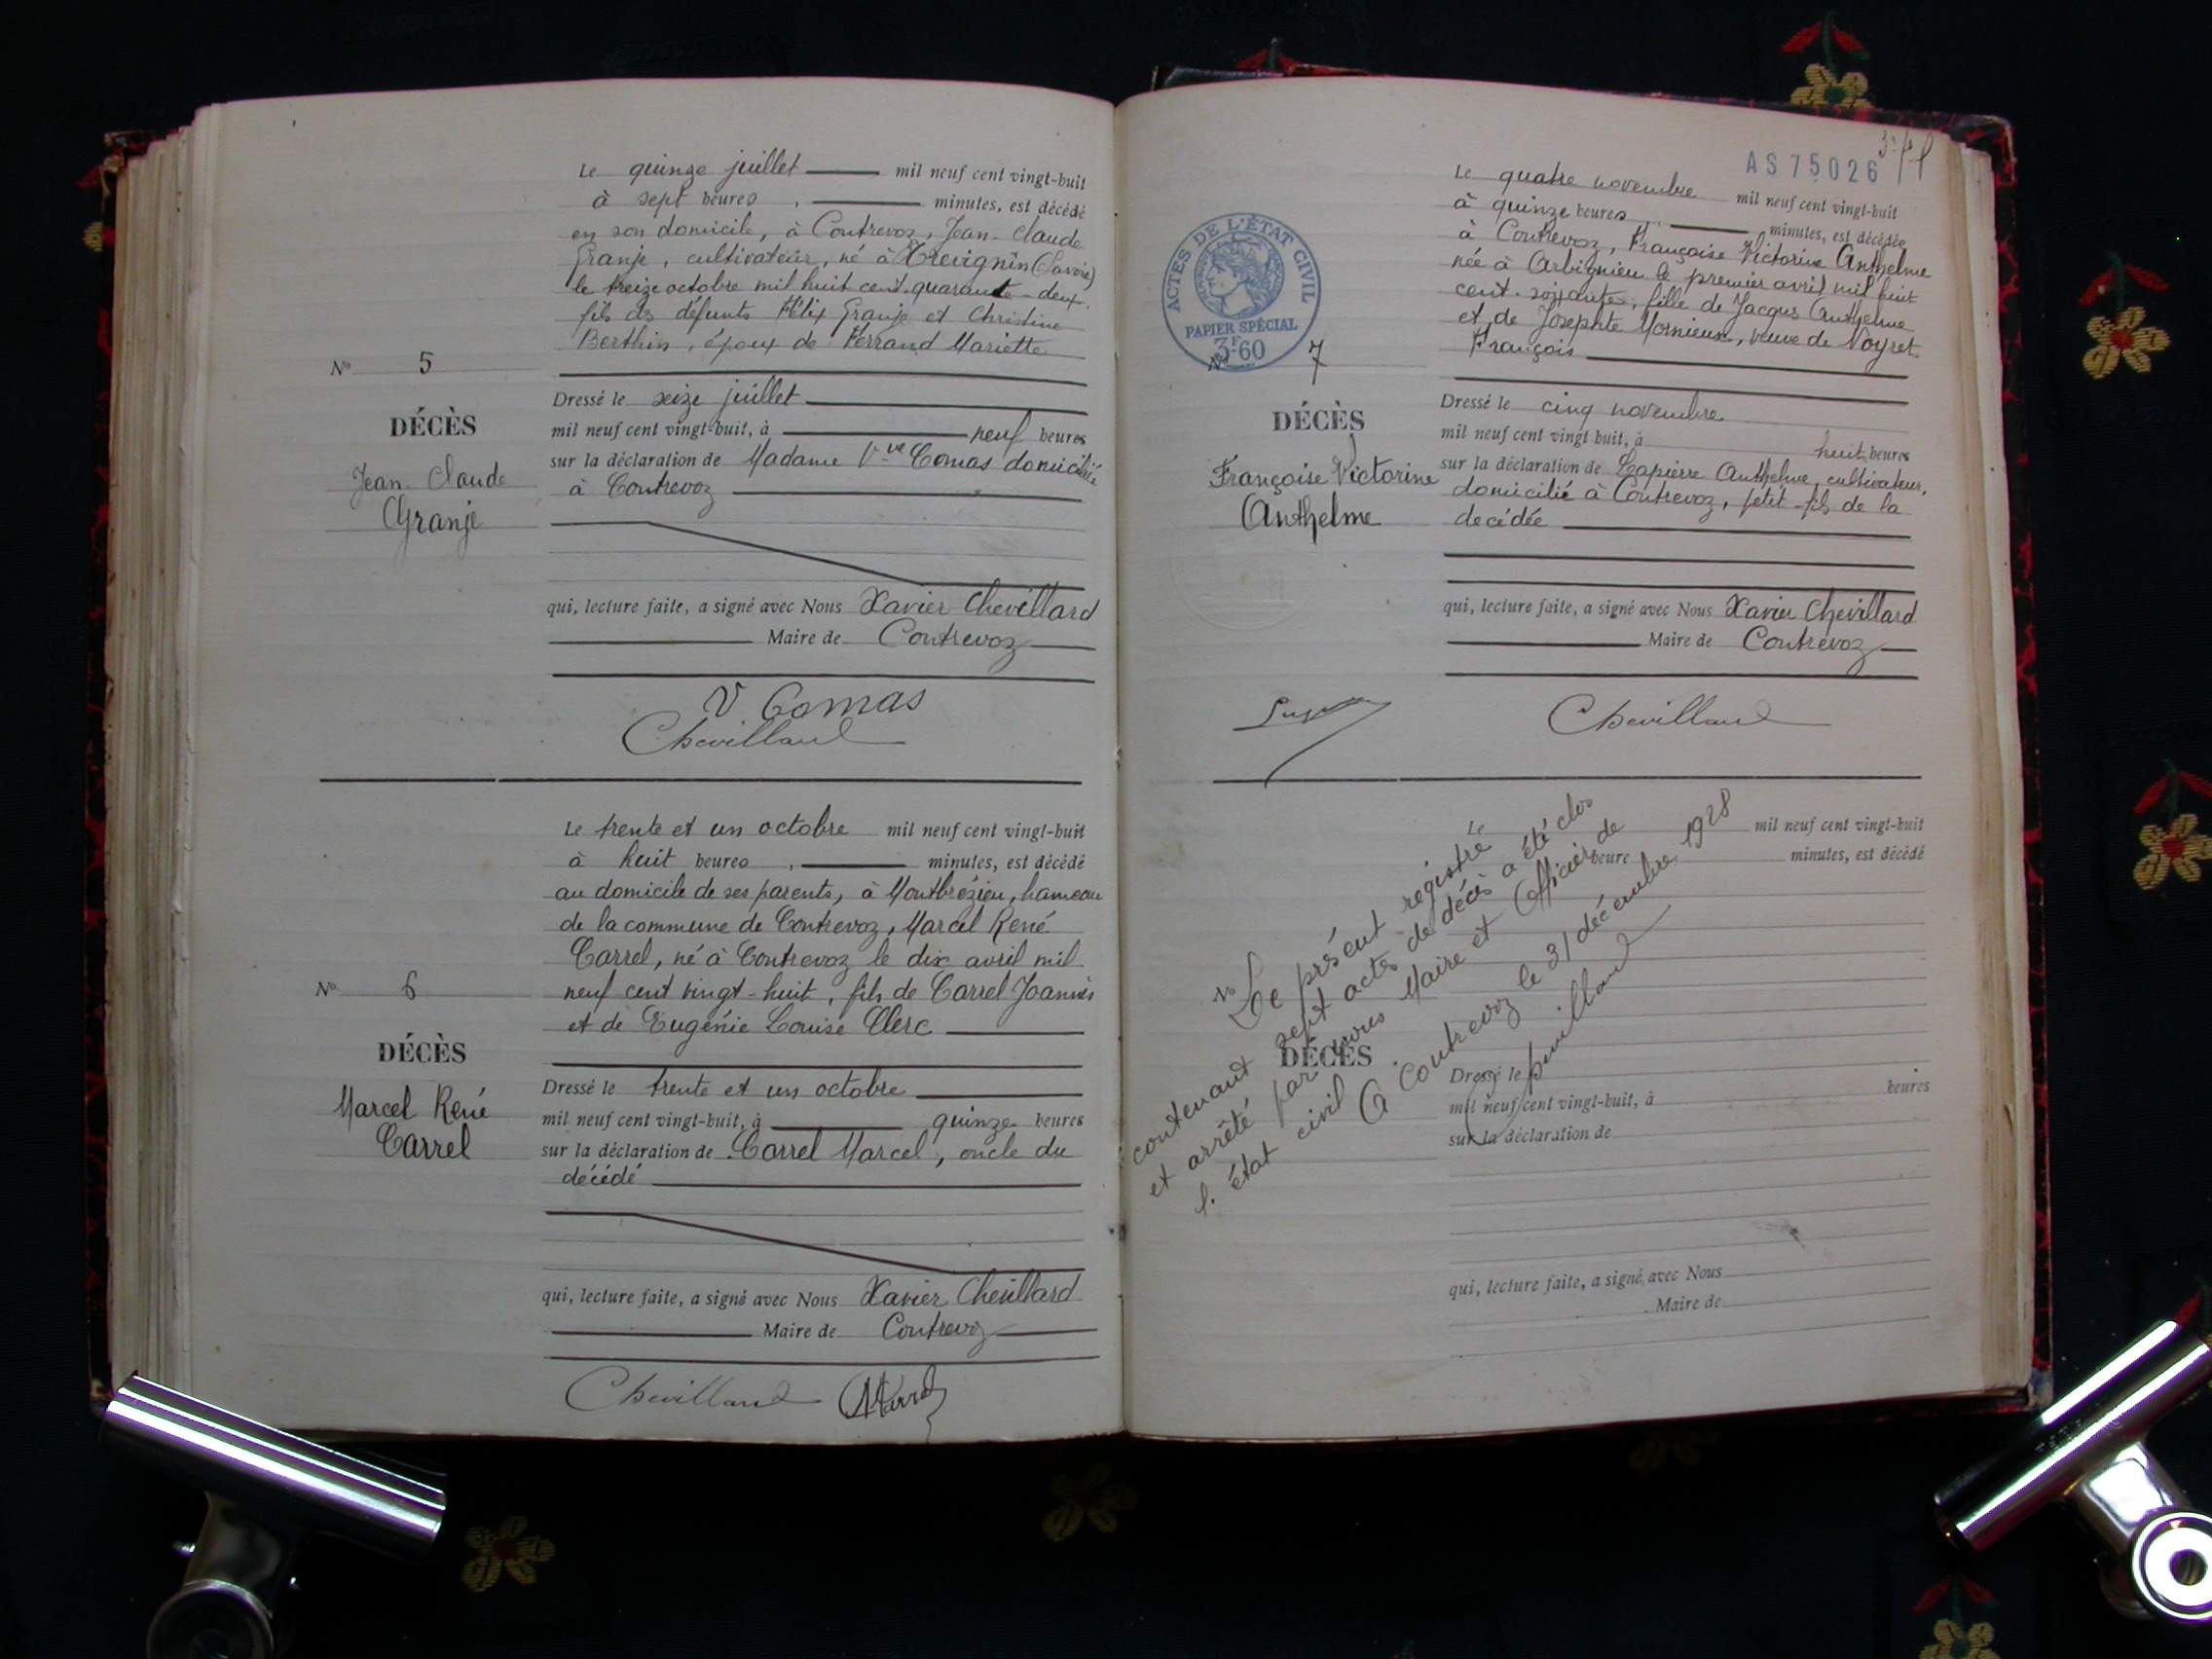 Le quinze juillet mil neuf cent vingt-huit
à sept heures, minutes, est décédé
en son domicile, à Contrevoz, Jean-Claude
Granje, cultivateur, né à Trévignin (Savoie)
le treize octobre mil huit cent quarante-deux,
fils des défunts Félix Granje et Christine
Berthin, époux de Ferrand Mariette
N° 5
DÉCÈS
Jean-Claude
Granje
Dressé le seize juillet
mil neuf cent vingt-huit, à neuf heures
sur la déclaration de Madame Vve Comas domiciliée
à Contrevoz
qui, lecture faite, a signé avec Nous Xavier Chevillard
Maire de Contrevoz
V Comas
Chevillard
Le trente et un octobre mil neuf cent vingt-huit
à huit heures, minutes, est décédé
au domicile de ses parents, à Montbrézieu, hameau
de la commune de Contrevoz, Marcel René
Carrel, né à Contrevoz le dix avril mil
neuf cent vingt-huit, fils de Carrel Joannès
et de Eugénie Louise Clerc
N° 6
DÉCÈS
Marcel René
Carrel
Dressé le trente et un octobre
mil neuf cent vingt-huit, à quinze heures
sur la déclaration de Carrel Marcel, oncle du
décédé
qui, lecture faite, a signé avec Nous Xavier Chevillard
Maire de Contrevoz
Chevillard
AS 75026
ACTES DE L'ÉTAT CIVIL
PAPIER SPÉCIAL
3F60
Le quatre novembre mil neuf cent vingt-huit
à quinze heures, minutes, est décédée
à Contrevoz, Françoise Victorine Anthelme
née à Arbignieu le premier avril mil huit
cent soixante, fille de Jacques Anthelme
et de Josephte Mornieux, veuve de Noyret
François
N° 7
DÉCÈS
Françoise Victorine
Anthelme
Dressé le cinq novembre
mil neuf cent vingt-huit, à huit heures
sur la déclaration de Lapierre Anthelme, cultivateur,
domicilié à Contrevoz, petit-fils de la
decédée
qui, lecture faite, a signé avec Nous Xavier Chevillard
Maire de Contrevoz
Chevillard
Le mil neuf cent vingt-huit
heure minutes, est décédé
N°
DÉCÈS
Le présent registre
contenant sept actes de décès a été clos
et arrêté par nous Maire et Officier de
l'état civil. A Contrevoz le 31 décembre 1928
Chevillard
Dressé le
mil neuf cent vingt-huit, à heures
sur la déclaration de
qui, lecture faite, a signé avec Nous
Maire de